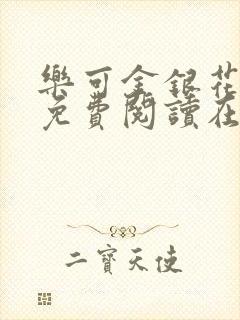 樂可金銀花
免費閱讀在
二寶天使